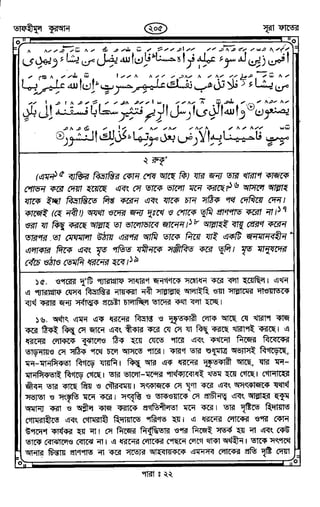 তাফহীমুল কুরআন
২০৫
সূরা ফাতের
اَفَمَنْ زُيِّنَ لَهٗ سُوْٓءُ عَمَلِهٖ فَرَاٰهُ حَسَنًا ؕ فَاِنَّ اللّٰهَ يُضِلُّ مَنْ يَّشَآءُ وَيَهْدِيْ
مَنْ يَّشَآءُ ۖ فَلَا تَذْهَبْ نَفْسُكَ عَلَيْهِمْ حَسَرٰتٍ ؕ اِنَّ اللّٰهَ عَلِيْمٌۢ بِمَا
يَصْنَعُوْنَ ۝ وَاللّٰهُ الَّذِيْٓ اَرْسَلَ الرِّيٰحَ فَتُثِيْرُ سَحَابًا فَسُقْنٰهُ اِلٰى بَلَدٍ
مَّيِّتٍ فَاَحْيَيْنَا بِهِ الْاَرْضَ بَعْدَ مَوْتِهَا ؕ كَذٰلِكَ النُّشُوْرُ ۝
২ রুকূ'
(এমন)১৫ ব্যক্তির বিভ্রান্তির কোন শেষ আছে কি) যার জন্য তার খারাপ কাজকে
শোভন করে দেয়া হয়েছে এবং সে তাকে ভালো মনে করছে?১৬ আসলে আল্লাহ
যাকে ইচ্ছা বিভ্রান্তিতে লিপ্ত করেন এবং যাকে চান সঠিক পথ দেখিয়ে দেন।
কাজেই (হে নবী!) অযথা ওদের জন্য দুঃখে ও শোকে তুমি প্রাণপাত করো না।১৭
ওরা যা কিছু করছে আল্লাহ তা ভালোভাবে জানেন।১৮ আল্লাহই বায়ু প্রেরণ করেন
তারপর তা মেঘমালা উঠায় এরপর আমি তাকে নিয়ে যাই একটি জনমানবহীন
এলাকার দিকে এবং মৃত পতিত যমীনকে সঞ্জীবিত করে তুলি। মৃত মানুষদের
বেঁচে ওঠাও তেমনি ধরনের হবে।১৯
১৫. ওপরের দু'টি প্যারাগ্রাফ সাধারণ জনগণকে সম্বোধন করে বলা হয়েছিল। এখন
এ প্যারাগ্রাফে যেসব বিভ্রান্তির নায়করা নবী সাল্লাল্লাহু আলাইহি ওয়া সাল্লামের দাওয়াতকে
ব্যর্থ করার জন্য সর্বাত্মক প্রচেষ্টা চালাচ্ছিল তাদের কথা বলা হচ্ছে।
১৬. অর্থাৎ এমন এক ধরনের বিভ্রান্ত ও দুষ্কৃতকারী লোক আছে যে খারাপ কাজ
করে ঠিকই কিন্তু সে জানে এবং স্বীকার করে যে সে যা কিছু করছে খারাপই করছে। এ
ধরনের লোককে বুঝালেও ঠিক হয়ে যেতে পারে এবং কখনো নিজের বিবেকের
তাড়নায়ও সে সঠিক পথে চলে আসতে পারে। কারণ তার শুধুমাত্র অভ্যাসই বিগড়েছে,
মন-মানসিকতা বিগড়ে যায়নি। কিন্তু আর এক ধরনের দুষ্কৃতকারী আছে, যার মন-
মানসিকতাই বিগড়ে গেছে। তার ভালো-মন্দের পার্থক্যবোধই খতম হয়ে গেছে। গোনাহের
জীবন তার কাছে প্রিয় ও গৌরবময়। সৎকাজকে সে ঘৃণা করে এবং অসৎকাজকে যথার্থ
সভ্যতা ও সংস্কৃতি মনে করে। সৎবৃত্তি ও তাকওয়াকে সে প্রাচীনত্ব এবং আল্লাহর হুকুম
অমান্য করা ও অশ্লীল কাজ করাকে প্রগতিশীলতা মনে করে। তার দৃষ্টিতে হিদায়াত
গোমরাহীতে এবং গোমরাহী হিদায়াতে পরিণত হয়। এ ধরনের লোকের ওপর কোন
উপদেশ কার্যকর হয় না। সে নিজের নির্বুদ্ধিতার ওপর নিজেই সতর্ক হয় না এবং কেউ
তাকে বোঝালেও বোঝে না। এ ধরনের লোকের পেছনে লেগে থাকা অর্থহীন। তাকে সৎপথে
আনার চিন্তায় প্রাণপাত না করে সত্যের আহবায়ককে এমনসব লোকের প্রতি দৃষ্টি দেয়া
পারা : ২২